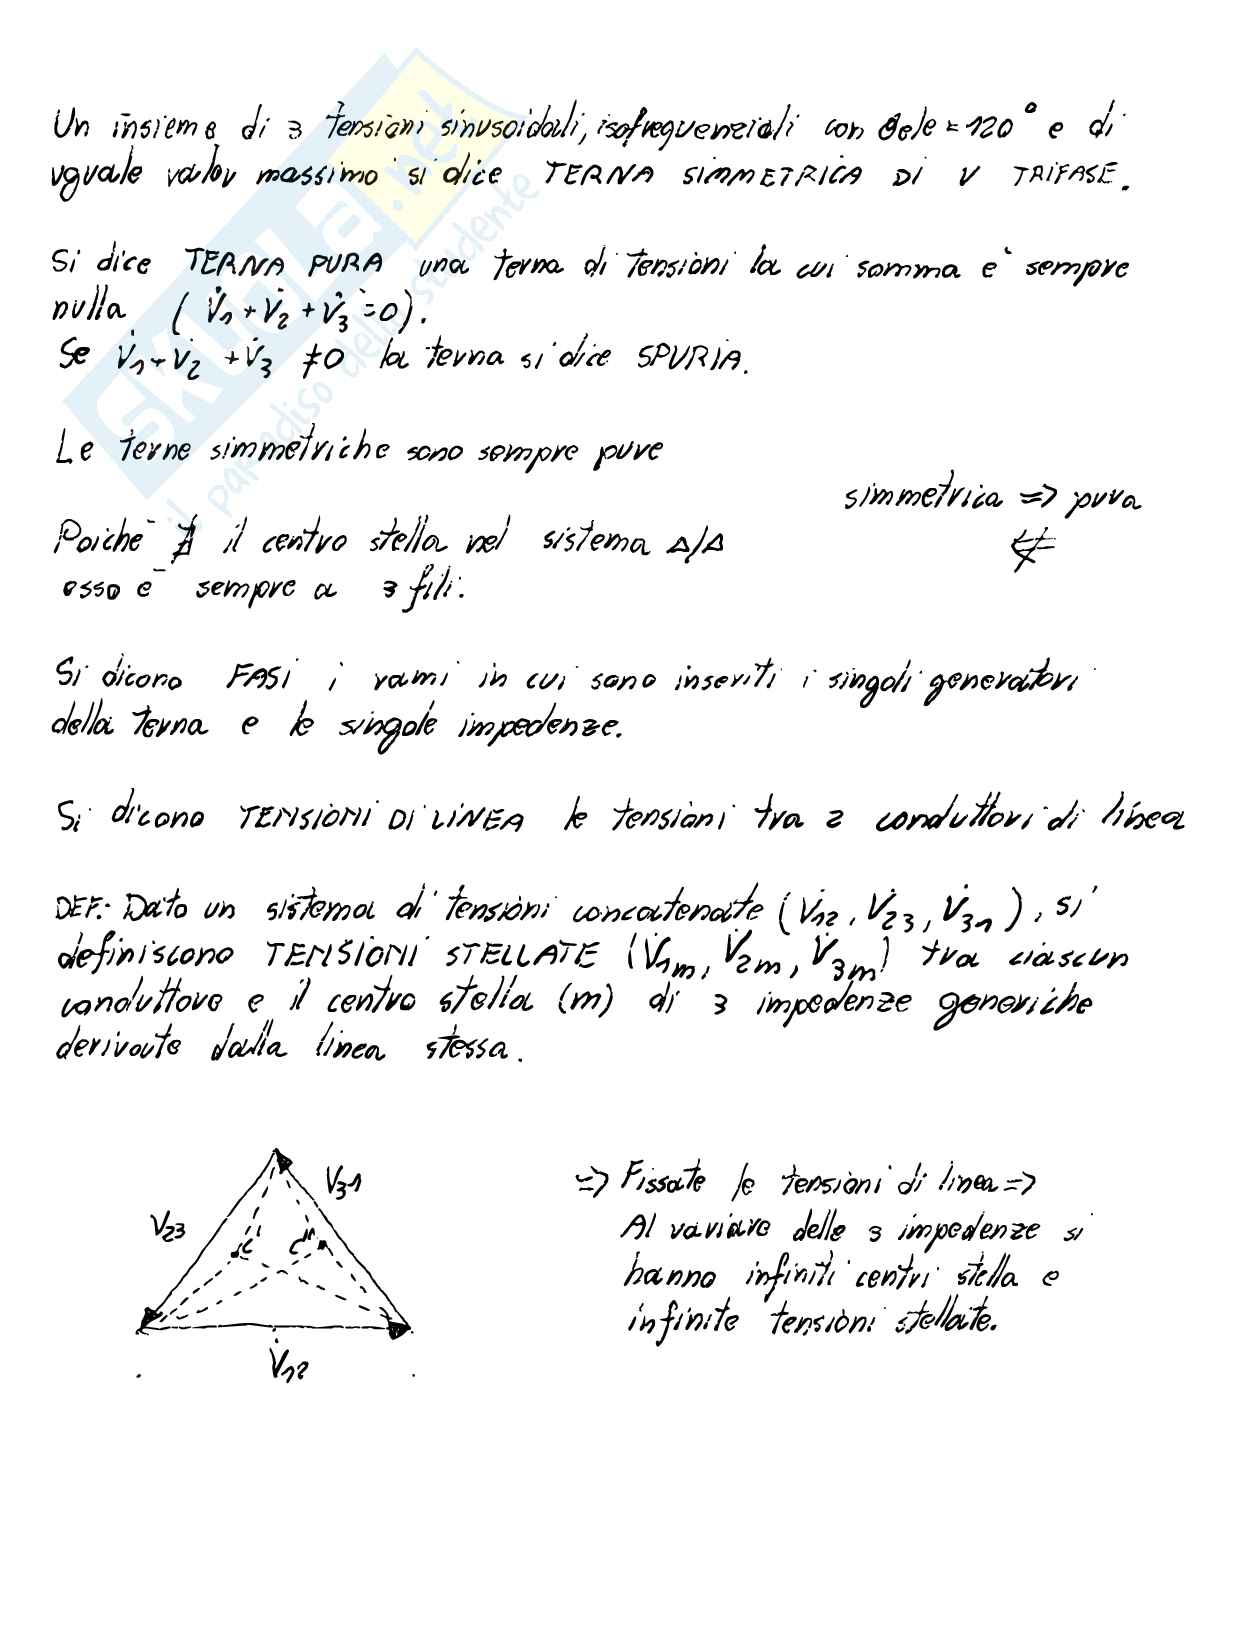 Un insieme di 3 tensioni sinusoidali, isofrequenziali con θele = 120° e di
uguale valor massimo si dice TERNA SIMMETRICA DI V TRIFASE.
Si dice TERNA PURA una terna di tensioni la cui somma è sempre
nulla ( V̇1 + V̇2 + V̇3 = 0 ).
Se V̇1 + V̇2 + V̇3 ≠ 0 la terna si dice SPURIA.
Le terne simmetriche sono sempre pure
simmetrica => pura
⇍
Poichè ∄ il centro stella nel sistema Δ/Δ
esso è sempre a 3 fili.
Si dicono FASI i rami in cui sono inseriti i singoli generatori
della terna e le singole impedenze.
Si dicono TENSIONI DI LINEA le tensioni tra 2 conduttori di linea
DEF.: Dato un sistema di tensioni concatenate (V̇12, V̇23, V̇31), si
definiscono TENSIONI STELLATE (V̇1m, V̇2m, V̇3m) tra ciascun
conduttore e il centro stella (m) di 3 impedenze generiche
derivate dalla linea stessa.
V31
V23
C' C"
V̇12
=> Fissate le tensioni di linea =>
Al variare delle 3 impedenze si
hanno infiniti centri stella e
infinite tensioni stellate.
SKUOLA.net
il paradiso dello studente